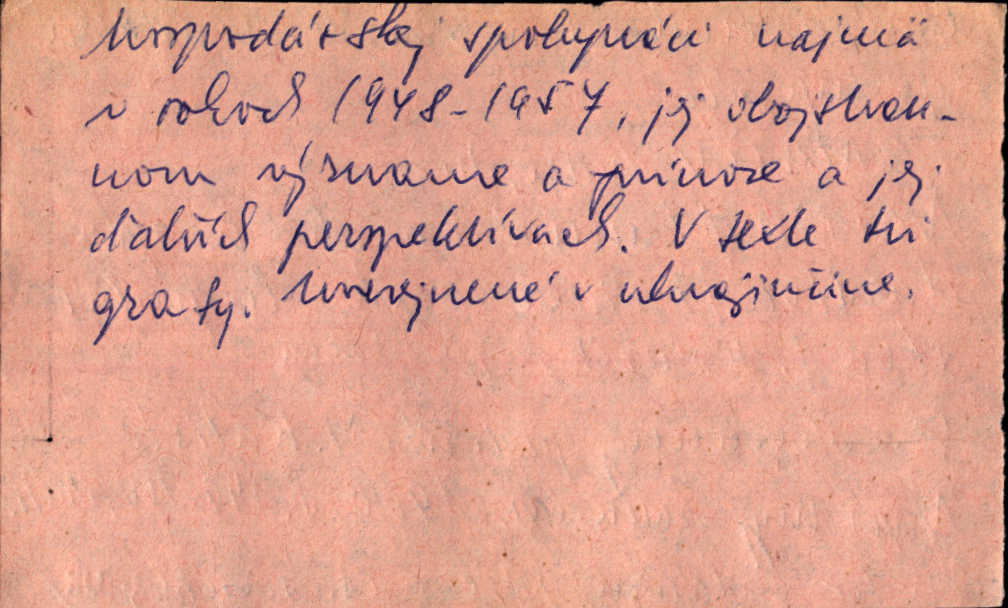 hospodárskej spolupráci najmä
v rokoch 1948-1957, jej obojstran-
nom význame a prínose a jej
ďalších perspektívach. V texte tri
grafy. Uverejnené v ukrajinčine.